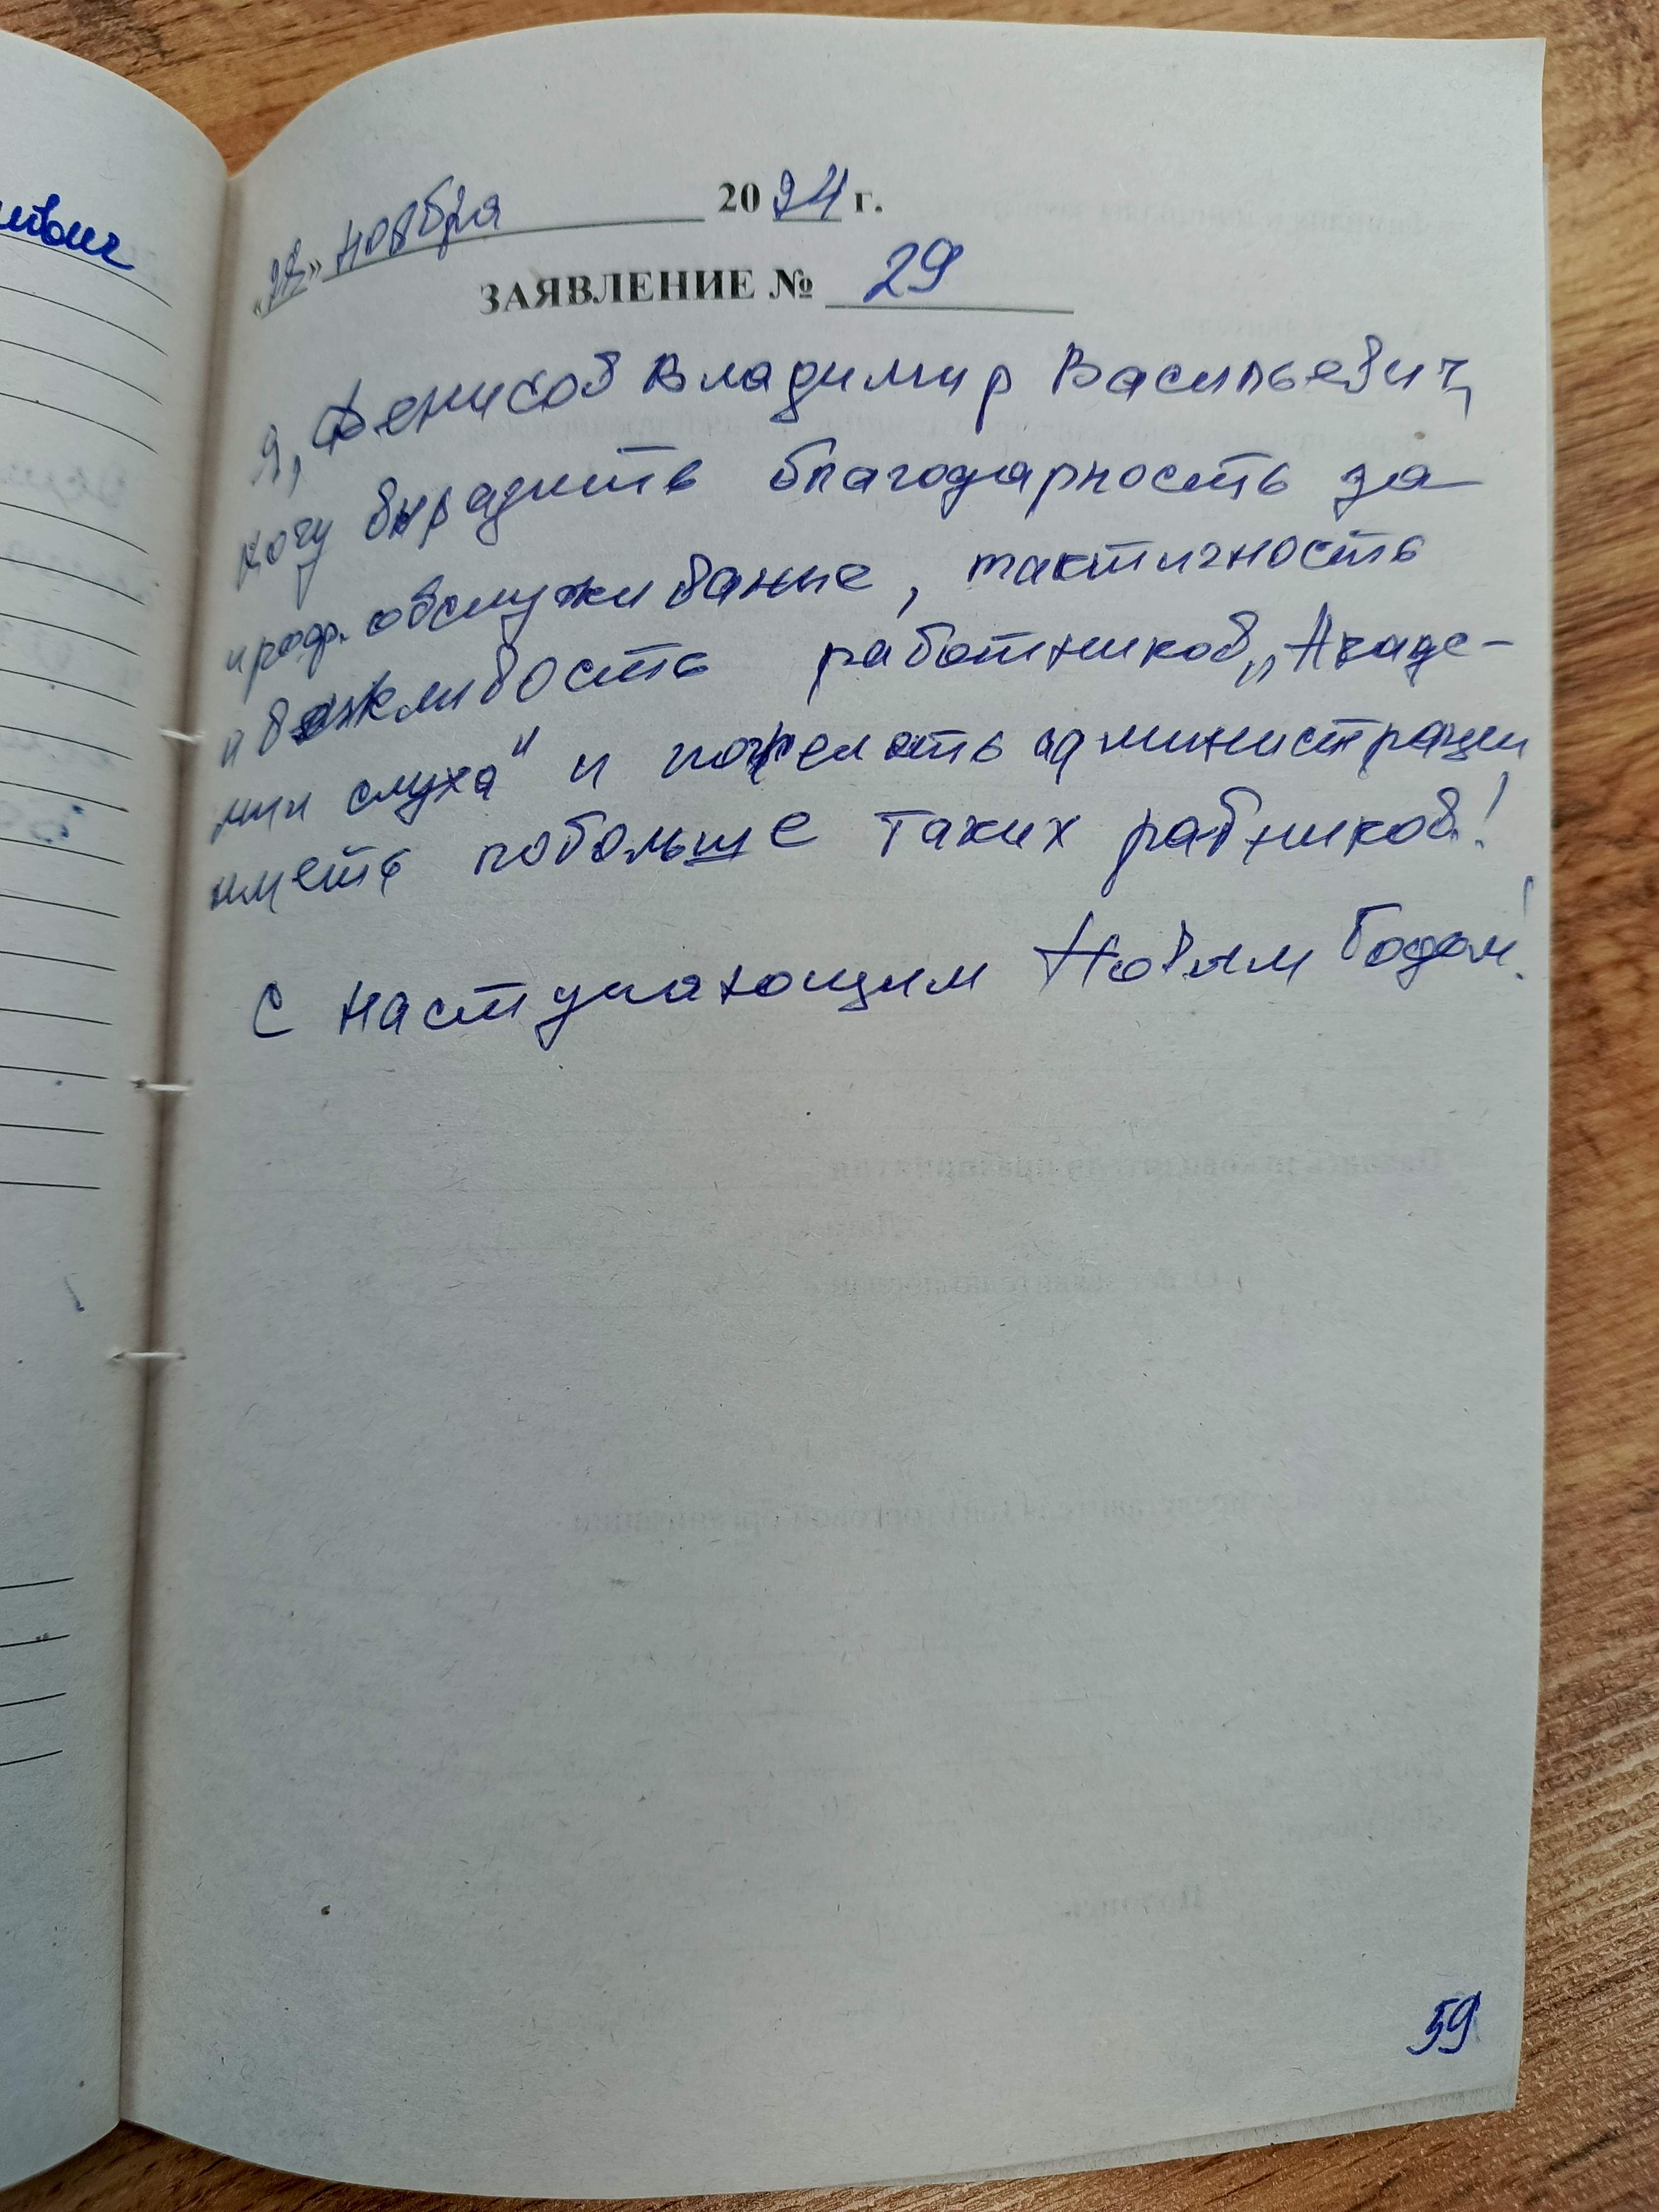 ноября 2024 г.
ЗАЯВЛЕНИЕ № 29
Я, Денисов Владимир Васильевич,
хочу выразить благодарность за
проф. обслуживание, тактичность
и вежливость работников „Акаде-
мии слуха" и пожелать администрации
иметь побольше таких рабников!
С наступающим Новым Годом!
59